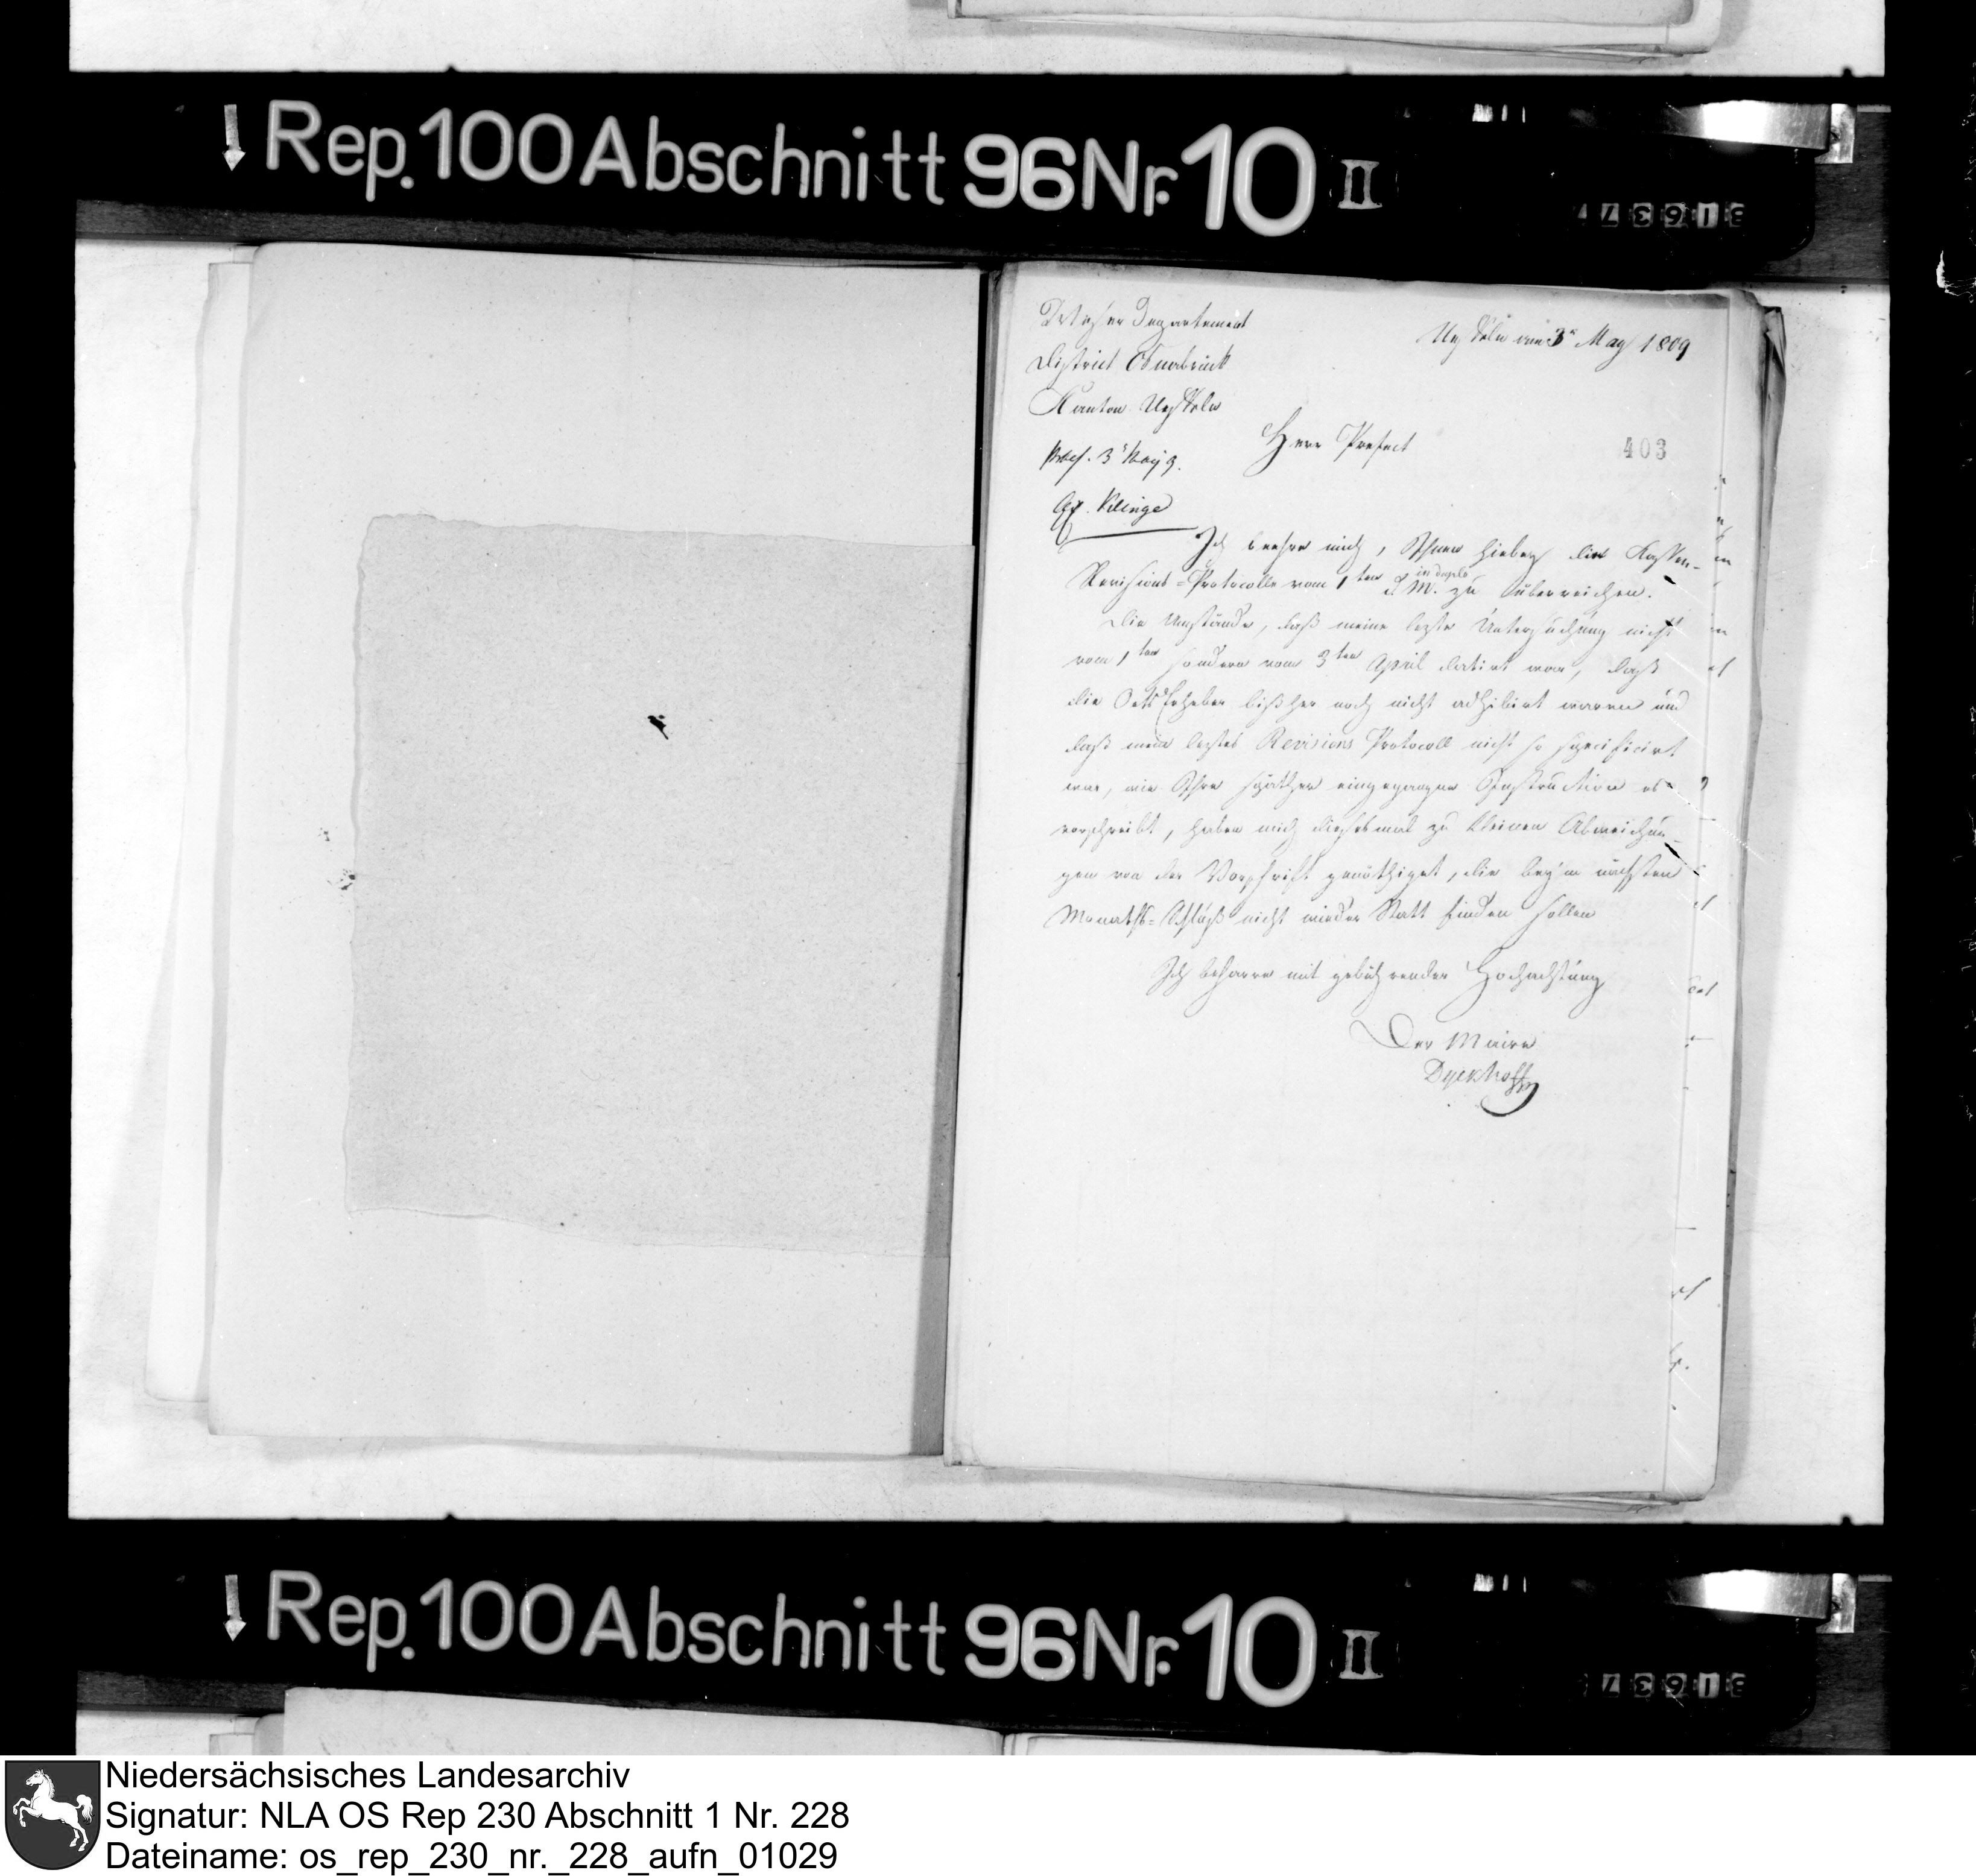 Rep. 100 Abschnitt 96 Nr. 10 II
31637
Weser Departement
District Osnabrück
Kanton
den 3n May 1809
Herr Prefect
403
Praes. 3t May 9.
Klinge
Ich beehre mich, Ihnen hiebey die Kassen-
Revisions-Protocolle vom 1ten d. M. in duplo zu überreichen.
Die Umstände, daß meine lezte Untersuchung nicht
vom 1ten sondern vom 3ten April datirt war, daß
die Orts Erheber bißher noch nicht adhibirt waren und
daß mein leztes Revisions Protocoll nicht so specificirt
war, wie Ihre späther eingegangne Instruction es
vorschreibt, haben mich diesesmal zu kleinen Abweichun-
gen von der Vorschrift genöthiget, die bey'm nächsten
Monaths-Schluß nicht wieder Statt finden sollen
Ich beharre mit gebührender Hochachtung
Der Maire
Dyckhoff
Rep. 100 Abschnitt 96 Nr. 10 II
31637
Niedersächsisches Landesarchiv
Signatur: NLA OS Rep 230 Abschnitt 1 Nr. 228
Dateiname: os_rep_230_nr._228_aufn_01029